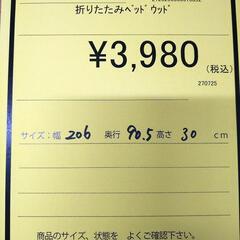 折りたたみﾍﾞｯﾄﾞｳｯﾄﾞ
¥3,980
(税込)
270725
サイズ:幅 206 奥行 90.5 高さ 30 cm
商品のサイズ、状態を よくご確認下さい。